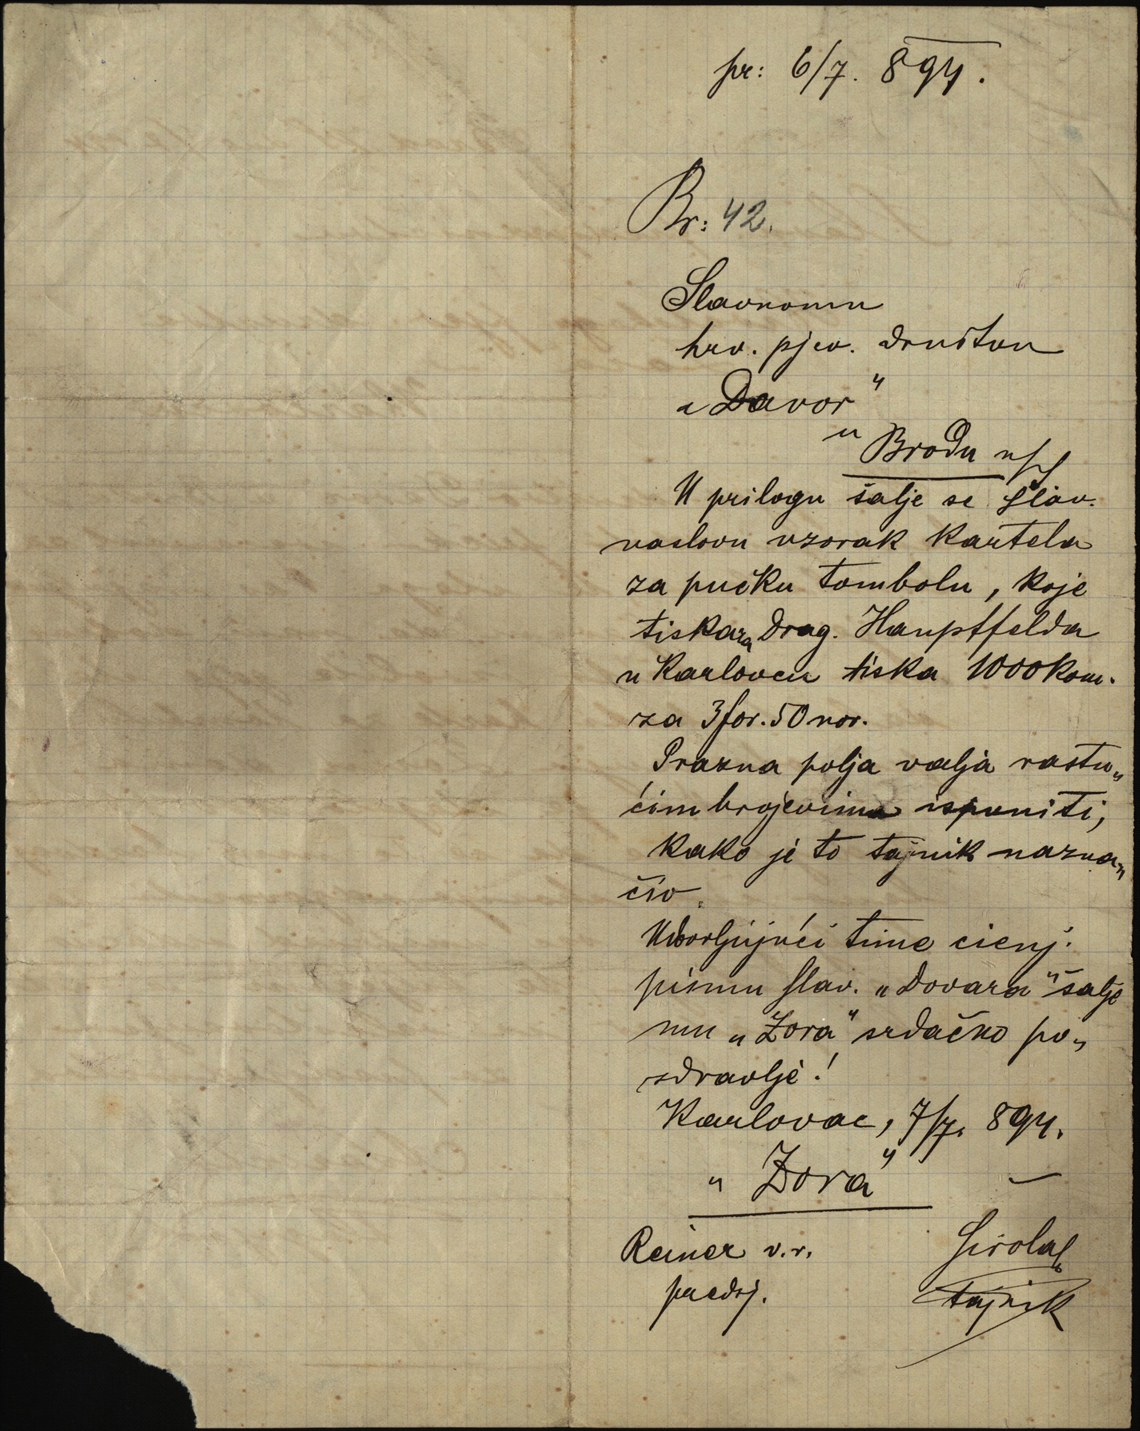 pr: 6/7. 894.
Br: 42.
Slavnomu
hrv. pjev. društvu
„Davor"
u Brodu n/S
U prilogu šalje se slav.
naslovu uzorak kartela
za pučku tombolu, koje
tiskara Drag. Hauptfelda
u Karlovcu tiska 1000 kom.
za 3 for. 50 nov.
Prazna polja valja rastu„
ćim brojevima ispuniti,
kako je to tajnik nazna„
čio.
Udovoljujući time cienj.
pismu slav. „Dovara" šalje
mu „Zora" srdačno po„
zdravlje!
Karlovac, 7/7. 894.
„Zora"
Reiner v.r.
predsj.
tajnik